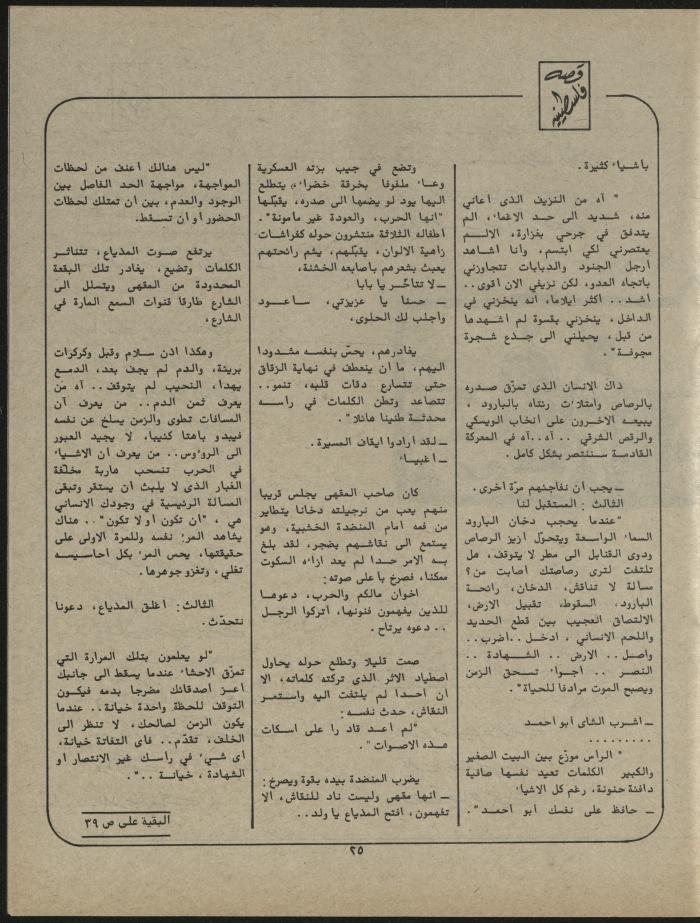 قصة
فلسطينية
بأشياء كثيرة .
" آه من النزيف الذى أعاني
منه، شديد الى حد الاغماء، الم
يتدفق في جرحي بغزارة، الالـــم
يعتصرني لكي ابتسم، وأنا أشاهد
أرجل الجنود والدبابات تتجاوزني
باتجاه العدو، لكن نزيفي الآن أقوى..
أشد.. أكثر ايلاما، انه ينخزني في
الداخل، ينخزني بقسوة لم أشهدها
من قبل، يحيلني الى جذع شجرة
مجوفة" .
ذاك الانسان الذي تمزّق صدره
بالرصاص وامتلأت رئتاه بالبارود ،
يبيعه الآخرون على أنخاب الويسكي
والرقص الشرقي .. آه..آه في المعركة
القادمة سننتصر بشكل كامل .
ـ يجب أن نفاجئهم مرّة أخرى.
الثالث : المستقبل لنا
"عندما يحجب دخان البارود
السماء الواسعة ويتحوّل أزيز الرصاص
ودوى القنابل الى مطر لا يتوقف، هل
تلتفت لترى رصاصتك أصابت من؟
مسألة لا تناقش، الدخان، رائحة
البارود، السقوط، تقبيل الارض،
الالتصاق العجيب بين قطع الحديد
واللحم الانساني ، ادخل ..اضرب..
واصل.. الارض .. الشهــادة ..
النصر .. أجواء تسحق الزمن
ويصبح الموت مرادفا للحياة" .
ـ اشرب الشاى أبو أحمد
.........
" الرأس موزّع بين البيت الصغير
والكبير الكلمات تعيد نفسها صافية
دافئة حنونة، رغم كل الاشياء
ـ حافظ على نفسك أبو أحمد" .
وتضع في جيب بزته العسكرية
وعاء ملفوفا بخرقة خضراء، يتطلع
اليها يود لو يضمها الى صدره، يقبّلها
"انها الحرب، والعودة غير مأمونة".
أطفاله الثلاثة منتشرون حوله كفراشات
زاهية الالوان، يقبّلهم، يشم رائحتهم
يعبث بشعرهم بأصابعه الخشنة،
ـ لا تتأخّر يا بابا
ـ حسنا يا عزيزتي، ســاعــود
وأجلب لك الحلوى،
يغادرهم، يحسّ بنفسه مشدودا
اليهم، ما أن ينعطف في نهاية الزقاق
حتى تتسارع دقات قلبه، تنمو..
تتصاعد وتطن الكلمات في رأســه
محدثة طنينا هائلا" .
ـ لقد أرادوا ايقاف المسيرة .
ـ أغبياء
كان صاحب المقهى يجلس قريبا
منهم يعب من نرجيلته دخانا يتطاير
من فمه أمام المنضدة الخشبية، وهو
يستمع الى نقاشهم بضجر، لقد بلغ
به الامر حدا لم يعد ازاءه السكوت
ممكنا، فصرخ بأعلى صوته:
اخوان مالكم والحرب، دعوهــا
للذين يفهمون فنونها، أتركوا الرجـل
.. دعوه يرتاح .
صمت قليلا وتطلع حوله يحاول
اصطياد الاثر الذي تركته كلماته، الا
أن أحدا لم يلتفت اليه واستمـر
النقاش، حدث نفسه:
"لم أعد قاد را على اسكات
هـذه الاصوات " .
يضرب المنضدة بيده بقوة ويصرخ:
ـ انها مقهى وليست ناد للنقاش، ألا
تفهمون، افتح المذياع يا ولد..
"ليس هنالك أعنف من لحظات
المواجهة، مواجهة الحد الفاصل بين
الوجود والعدم، بين أن تمتلك لحظات
الحضور أو أن تسقط.
يرتفع صوت المذياع، تتناثـر
الكلمات وتضيع، يغادر تلك البقعة
المحدودة من المقهى ويتسلل الى
الشارع طارقا قنوات السمع المارة في
الشارع،
وهكذا اذن سلام وقبل وكركرات
بريئة، والدم لم يجف بعد، الدمـع
يهدأ، النحيب لم يتوقف.. آه من
يعرف ثمن الدم.. من يعرف أن
المسافات تطوى والزمن يسلخ عن نفسه
فيبدو باهتا كئيبا، لا يجيد العبور
الى الرؤوس.. من يعرف أن الاشياء
في الحرب تنسحب هاربة مخلفة
الغبار الذى لا يلبث أن يستقر وتبقى
المسألة الرئيسية في وجودك الانساني
هي ، "أن تكون أو لا تكون".. هناك
يشاهد المرء نفسه وللمرة الاولى على
حقيقتها، يحس المرء بكل أحاسيسه
تغلي، وتغزو جوهرها.
الثالث: أغلق المذياع، دعونا
نتحدّث.
"لو يعلمون بتلك المرارة التي
تمزّق الاحشاء عندما يسقط الى جانبك
أعز أصدقائك مضرجا بدمه فيكون
التوقف للحظة واحدة خيانة.. عندما
يكون الزمن لصالحك، لا تنظر الى
الخلف، تقدّم.. فأى التفاتة خيانة،
أى شيء في رأسك غير الانتصار أو
الشهادة ، خيانة ..".
البقية على ص ٣٩
٢٥